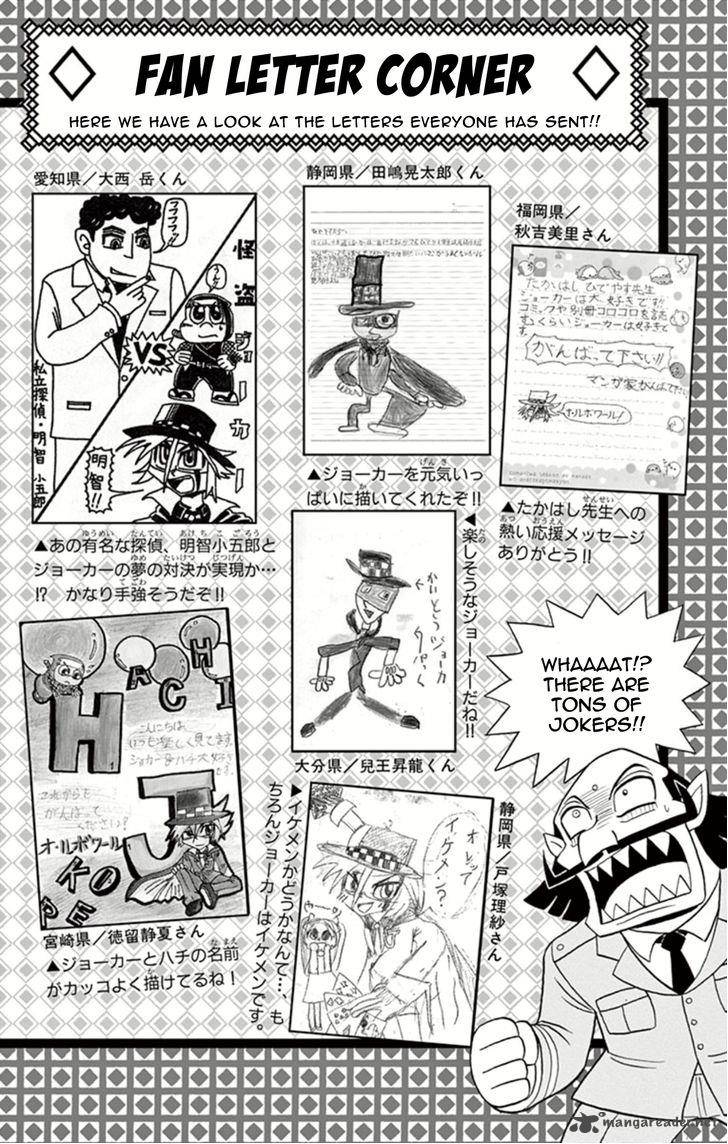 FAN LETTER CORNER
HERE WE HAVE A LOOK AT THE LETTERS EVERYONE HAS SENT!!
愛知県／大西 岳くん
フフフ!!
怪盗ジョーカー
VS
私立探偵・明智小五郎
明智!!
▲あの有名な探偵、明智小五郎と
ジョーカーの夢の対決が実現か…
!? かなり手強そうだぞ!!
静岡県／田嶋晃太郎くん
▲ジョーカーを元気いっ
ぱいに描いてくれたぞ!!
福岡県／
秋吉美里さん
たかはしひでやす先生
ジョーカーは大好きです!!
コミックや別冊コロコロを読
むくらいジョーカーは好きで
す
がんばって下さい!!
マンガ家がんばって下さい
オ・ルボワール!
▲たかはし先生への
熱い応援メッセージ
ありがとう!!
かいとうジョーカー
◀楽しそうなジョーカーだね!!
大分県／兒王昇龍くん
WHAAAAT!?
THERE ARE
TONS OF
JOKERS!!
HACHI
こんにちは
いつも楽しく見てます
ジョーカーとハチ大好き
です。
これからも
がんばって
ください!
オ・ルボワール
JOKER
宮崎県／徳留静夏さん
▲ジョーカーとハチの名前
がカッコよく描けてるね!
オレって
イケメン?
静岡県／戸塚理紗さん
▶イケメンかどうかなんて…、も
ちろんジョーカーはイケメンです。
mangareader.net